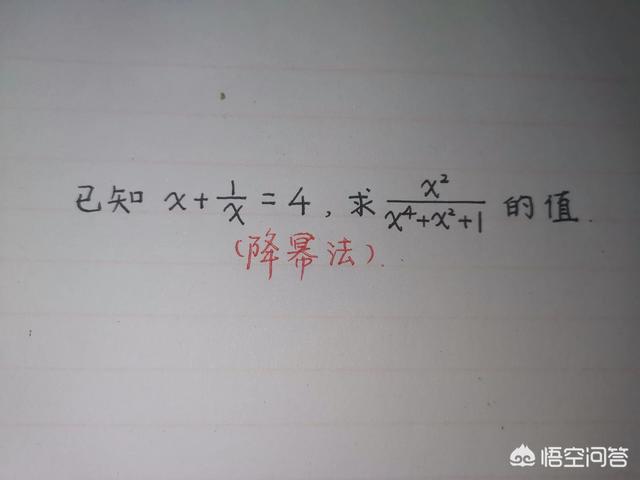 已知 x + 1/x = 4, 求 x²/(x⁴+x²+1) 的值.
(降幂法).
悟空问答